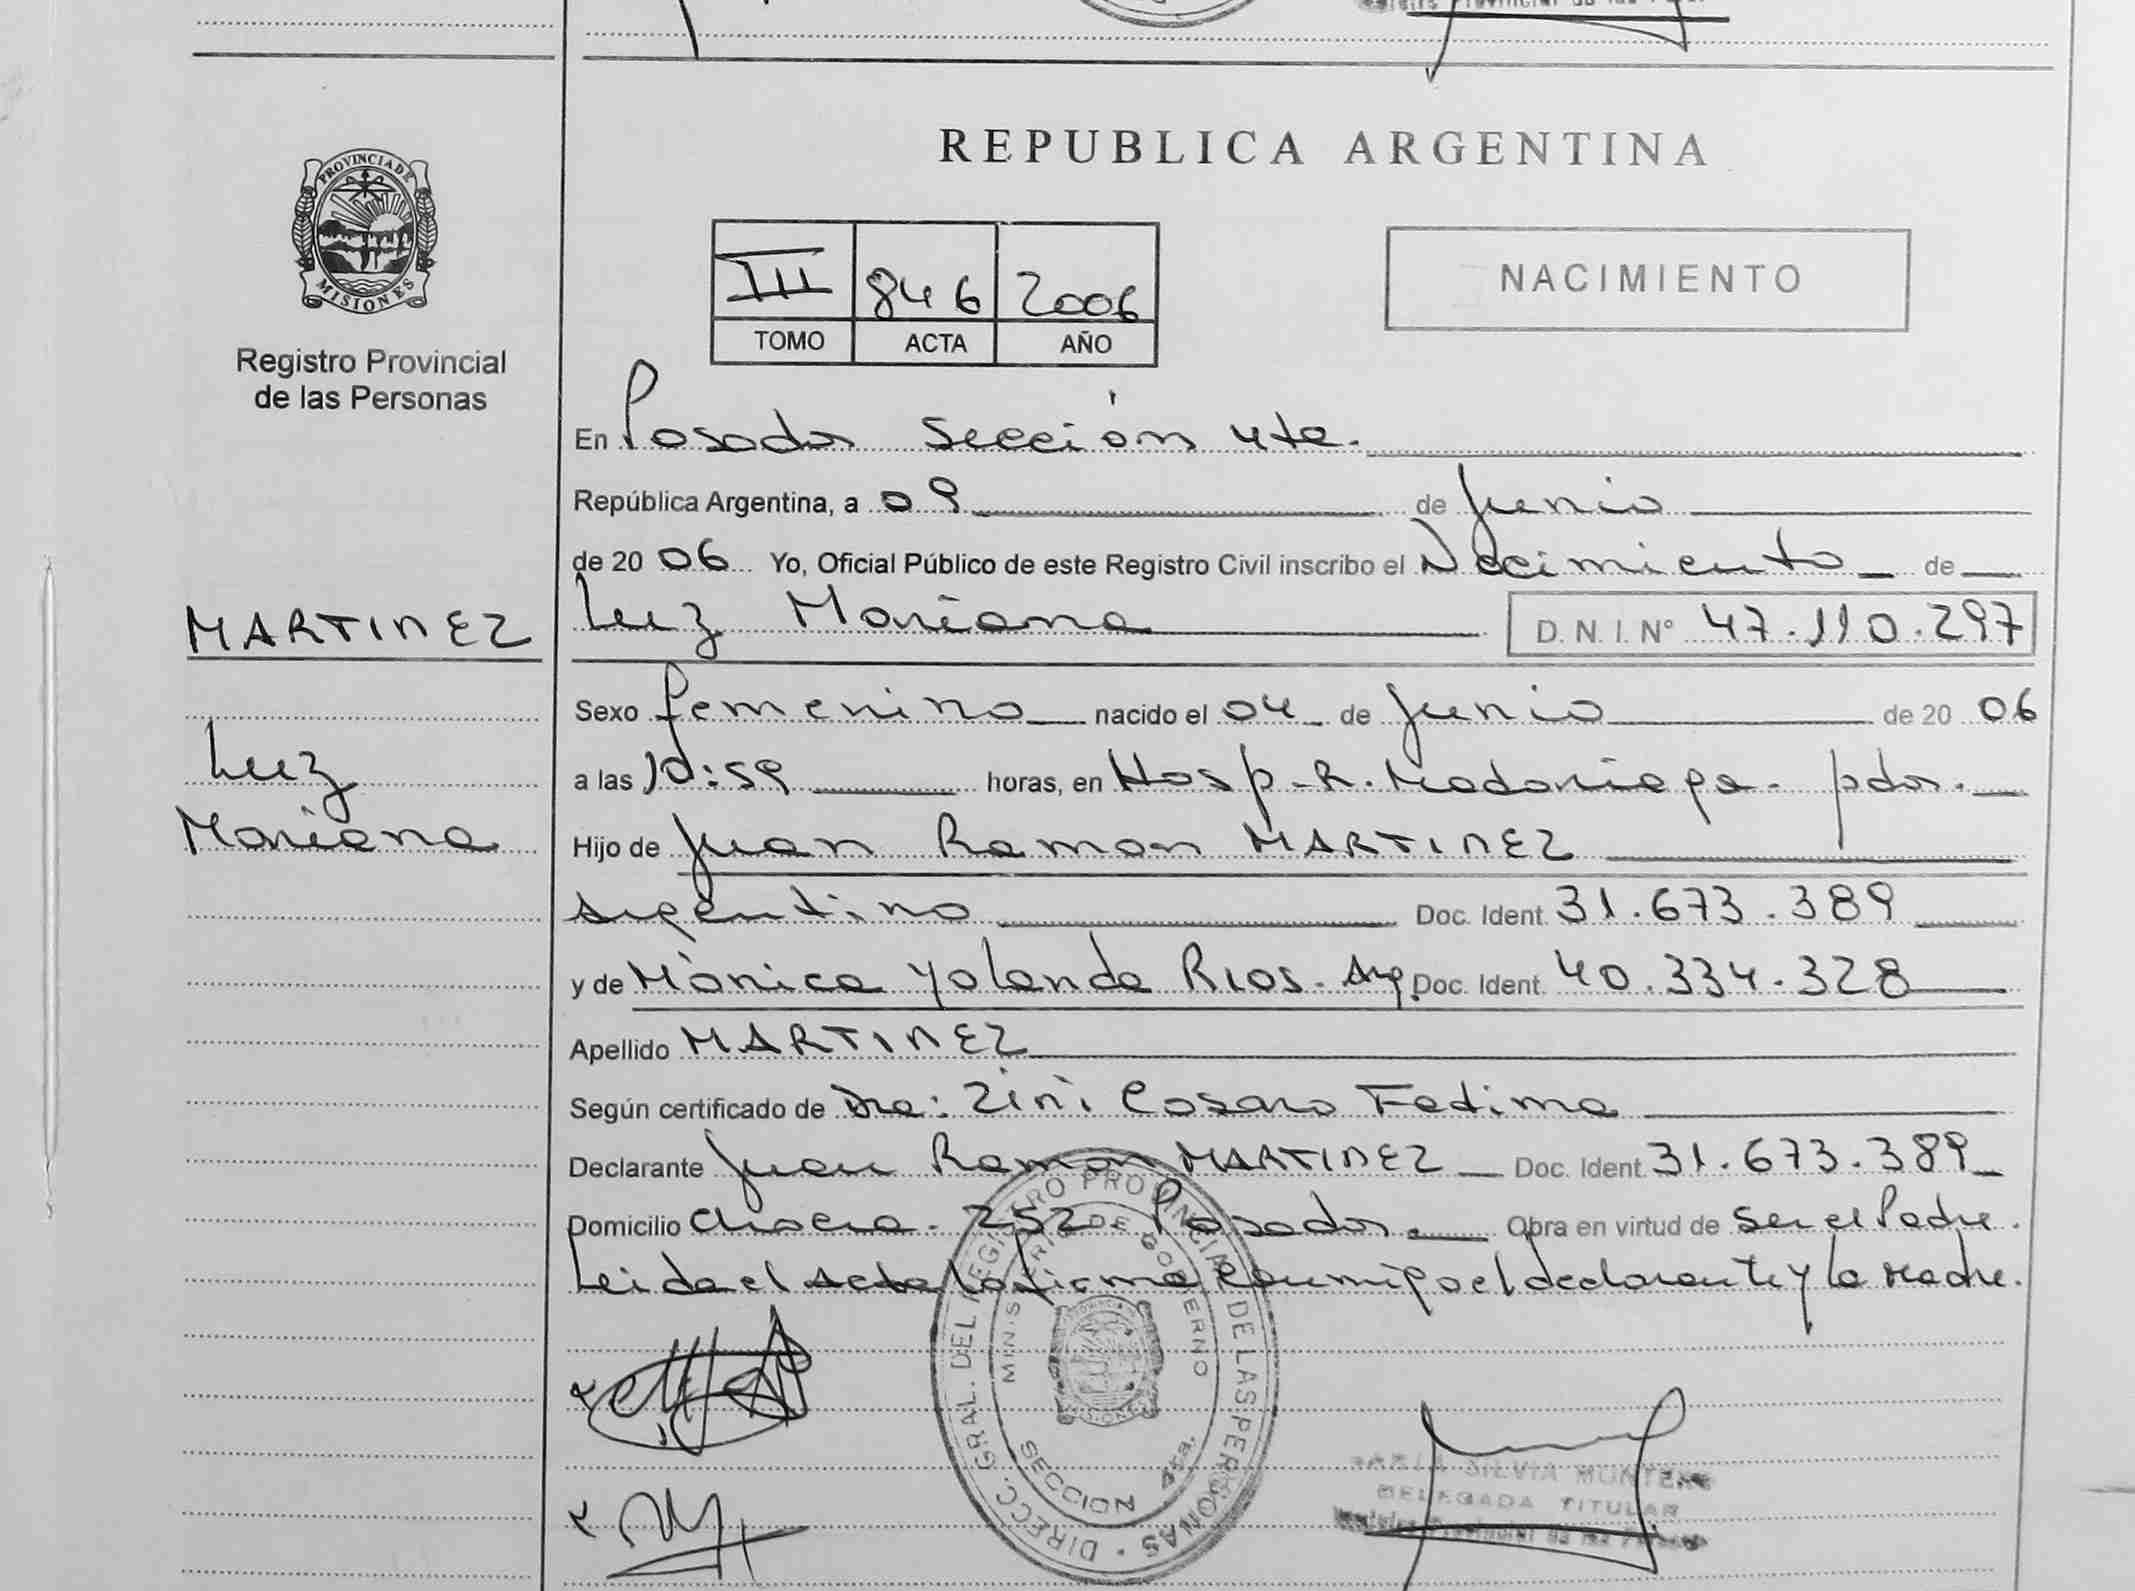 REPUBLICA ARGENTINA
PROVINCIA DE MISIONES
Registro Provincial
de las Personas
III 846 2006
TOMO ACTA AÑO
NACIMIENTO
En Posadas Sección 4ta.
República Argentina, a 09 de Junio
de 2006 Yo, Oficial Público de este Registro Civil inscribo el Nacimiento de
MARTINEZ
Luz Mariana D. N. I. Nº 47.110.297
Sexo femenino nacido el 04 de Junio de 2006
Luz
Mariana
a las 10:59 horas, en Hosp. R. Madariaga. pdas.
Hijo de Juan Ramon MARTINEZ
argentino Doc. Ident. 31.673.389
y de Mónica Yolanda RIOS. Arg. Doc. Ident. 40.334.328
Apellido MARTINEZ
Según certificado de Dra: Fatima
Declarante Juan Ramon MARTINEZ Doc. Ident. 31.673.389
Domicilio Chacra. 252 Posadas. Obra en virtud de ser el Padre.
Leida el acta la firma conmigo el declarante y la Madre.
DIRECC. GRAL. DEL REGISTRO PROVINCIAL DE LAS PERSONAS
MINISTERIO DE GOBIERNO
SECCION 4ta.
MARIA SILVIA MONTERO
DELEGADA TITULAR
Registro Provincial de las Personas